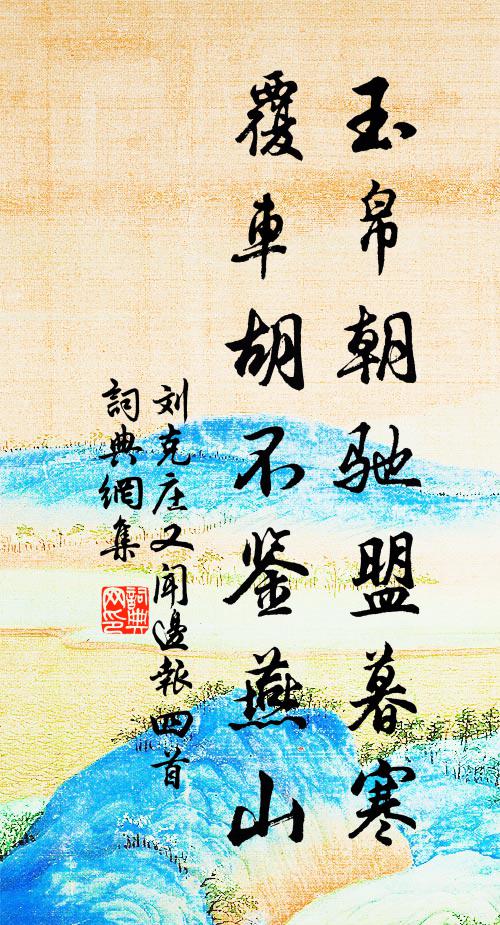 玉帛朝馳盟暮寒
覆車胡不鉴燕山
刘克庄又聞邊報四首
詞典網集
詞典网印